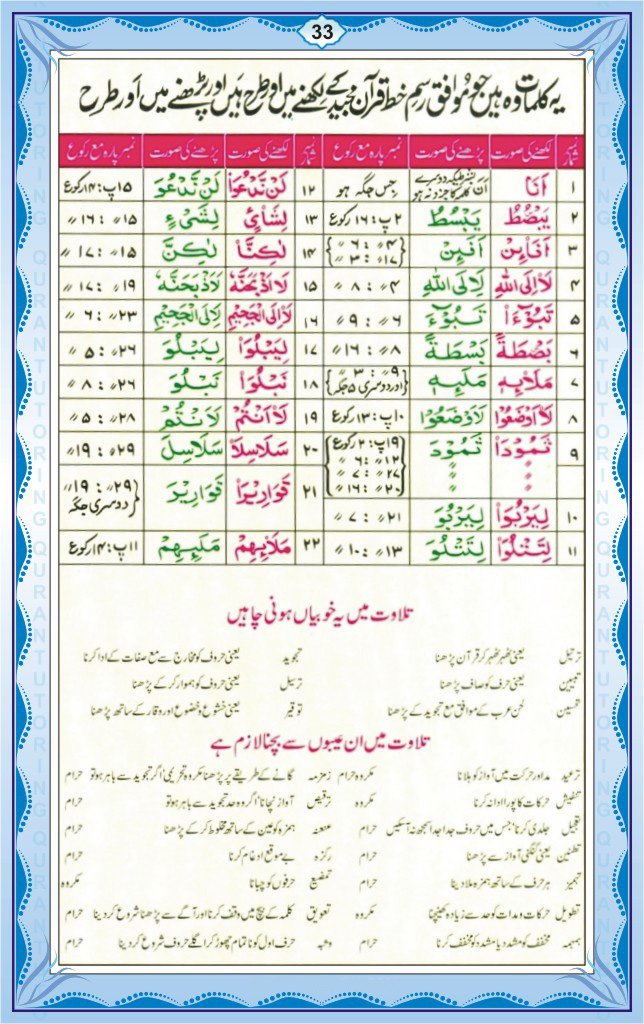 33
یہ کلمات وہ ہیں جو موافق رسمِ خط قرآن مجید کے لکھنے میں اور طرح ہیں اور پڑھنے میں اور طرح
نمبر شمار لکھنے کی صورت پڑھنے کی صورت نمبر پارہ مع رکوع نمبر شمار لکھنے کی صورت پڑھنے کی صورت نمبر پارہ مع رکوع
۱ اَنَا جس جگہ ہو ۱۲ لَنْ نَّدْعُوَا۟ لَنْ نَّدْعُوَ ۱۵پ : ۱۴ رکوع
۲ يَبْصُۜطُ يَبْسُطُ ۲ پ : ۱۶ رکوع ۱۳ لِشَایْءٍ لِشَیْءٍ ۱۵〃 : ۱۶〃
۳ اَفَا۟ئِنْ اَفَئِنْ ۴〃 : ۶〃 ۱۷〃 : ۳〃 ۱۴ لٰكِنَّا۟ لٰكِنَّ ۱۵〃 : ۱۷〃
۴ لَا۟اِلَى اللّٰهِ لَاِلَى اللّٰهِ ۴〃 : ۸〃 ۱۵ لَا۟اَذْبَحَنَّهٗ لَاَذْبَحَنَّهٗ ۱۹〃 : ۱۷〃
۵ تَبُوْٓءَا۟ تَبُوْٓءَ ۶〃 : ۹〃 ۱۶ لَا۟اِلَى الْجَحِيْمِ لَاِلَى الْجَحِيْمِ ۲۳〃 : ۶〃
۶ بَصْۜطَةً بَسْطَةً ۸〃 : ۱۶〃 ۱۷ لِيَبْلُوَا۟ لِيَبْلُوَ ۲۶〃 : ۵〃
۷ مَلَا۟ئِهٖ مَلَئِهٖ ۹〃 : ۳〃 اور دوسری ۵ جگہ ۱۸ نَبْلُوَا۟ نَبْلُوَ ۲۶〃 : ۸〃
۸ لَا۟اَوْضَعُوْا لَاَوْضَعُوْا ۱۰پ : ۱۳ رکوع ۱۹ لَا۟اَنْتُمْ لَاَنْتُمْ ۲۸〃 : ۵〃
۹ ثَمُوْدَا۟ ثَمُوْدَ ۲۰ سَلَاسِلَا۟ سَلَاسِلَ ۲۹〃 : ۱۹〃
〃 〃 ۱۲〃 : ۶〃
〃 〃 ۲۷〃 : ۷〃 ۲۱ قَوَارِيْرَا۟ قَوَارِيْرَ ۲۹〃 : ۱۹〃 دوسری جگہ
〃 〃 ۲۰〃 : ۱۶〃
۱۰ لِيَرْبُوَا۟ لِيَرْبُوَ ۲۱〃 : ۷〃
۱۱ لِتَتْلُوَا۟ لِتَتْلُوَ ۱۳〃 : ۱۰〃 ۲۲ مَلَا۟ئِهِمْ مَلَئِهِمْ ۱۱پ : ۱۴ رکوع
تلاوت میں یہ خوبیاں ہونی چاہیں
ترتیل یعنی ٹھہر ٹھہر کر قرآن پڑھنا تجوید یعنی حروف کو مخارج سے مع صفات کے ادا کرنا
تبیین یعنی حرف کو صاف پڑھنا ترسیل یعنی حروف کو ہموار کرکے پڑھنا
تحسین لحن عرب کے موافق مع تجوید کے پڑھنا توقیر یعنی خشوع و خضوع اور وقار کے ساتھ پڑھنا
تلاوت میں ان عیبوں سے بچنا لازم ہے
ترعید مد اور حرکت میں آواز کو ہلانا مکروہ حرام زمزمہ گانے کے طریقے پر پڑھنا مکروہ تحریمی اگر تجوید سے باہر ہو تو حرام
تنفیش حرکات کا پورا ادا نہ کرنا مکروہ ترقیص آواز نچانا اگر وہ حد تجوید سے باہر ہو تو حرام
جلدی کرنا جس میں حروف جدا جدا سمجھ نہ آسکیں حرام عنعنہ ہمزہ کو عین کے ساتھ مخلوط کرکے پڑھنا حرام
یعنی گنگنی آواز سے پڑھنا حرام رکزہ بے موقع ادغام کرنا حرام
تہمیز ہر حرف کے ساتھ ہمزہ ملا دینا حرام تمضیغ حرفوں کو چبانا مکروہ
تطویل حرکات و مدات کو حد سے زیادہ کھینچنا مکروہ تعویق کلمہ کے بیچ میں وقف کرنا اور آگے سے پڑھنا شروع کر دینا حرام
ہمہمہ مخفف کو مشدد یا مشدد کو مخفف کرنا حرام وثبہ حرف اول کو ناتمام چھوڑ کر اگلے حروف شروع کر دینا حرام
QURAN TUTORING QURAN TUTORING
QURAN TUTORING QURAN TUTORING